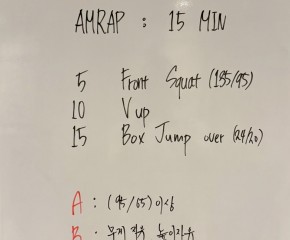 AMRAP : 15 MIN
5 Front Squat (135/95)
10 V up
15 Box Jump over (24/20)
A : (95/65) 이상
B : 무게 자유 높이자유